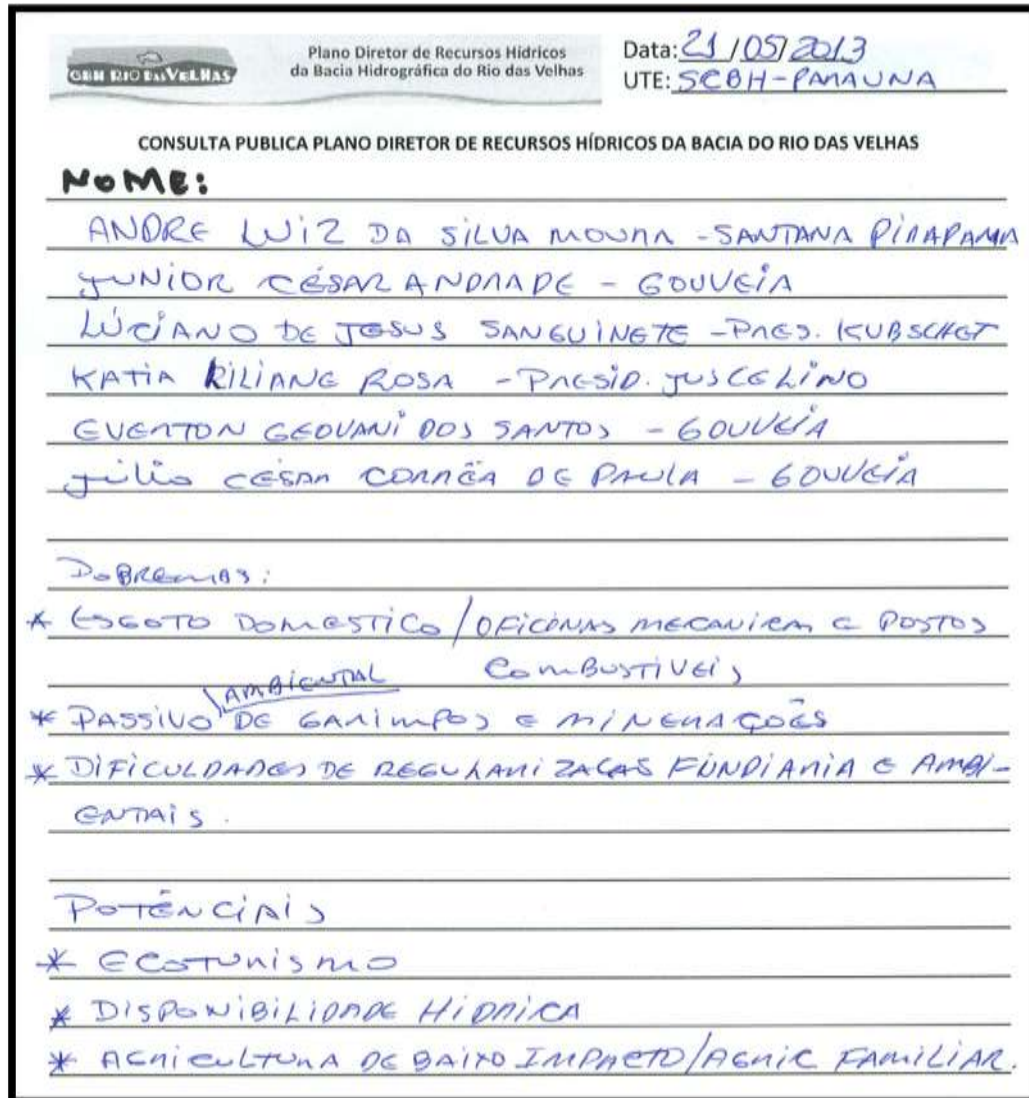 CBH RIO DAS VELHAS
Plano Diretor de Recursos Hídricos
da Bacia Hidrográfica do Rio das Velhas
Data: 21/05/2013
UTE: SCBH-PARAUNA
CONSULTA PUBLICA PLANO DIRETOR DE RECURSOS HÍDRICOS DA BACIA DO RIO DAS VELHAS
NOME:
ANDRE LUIZ DA SILVA MOURA - SANTANA PIRAPAMA
JUNIOR CÉSAR ANDRADE - GOUVEIA
LÚCIANO DE JESUS SANGUINETE - PRES. KUBSCHET
KATIA RILIANE ROSA - PRESID. JUSCELINO
EVERTON GEOVANI DOS SANTOS - GOUVEIA
JÚLIO CÉSAR CORRÊA DE PAULA - GOUVEIA
* ESGOTO DOMESTICO/OFICINAS MECANICA E POSTOS
COMBUSTIVEIS
* PASSIVO AMBIENTAL DE GARIMPOS E MINERAÇÕES
* DIFICULDADES DE REGULARIZACAS FUNDIARIA E AMBI-
ENTAIS.
POTÊNCIAIS
* ECOTURISMO
* DISPONIBILIDADE HIDRICA
* AGRICULTURA DE BAIXO IMPACTO/AGRIC FAMILIAR.